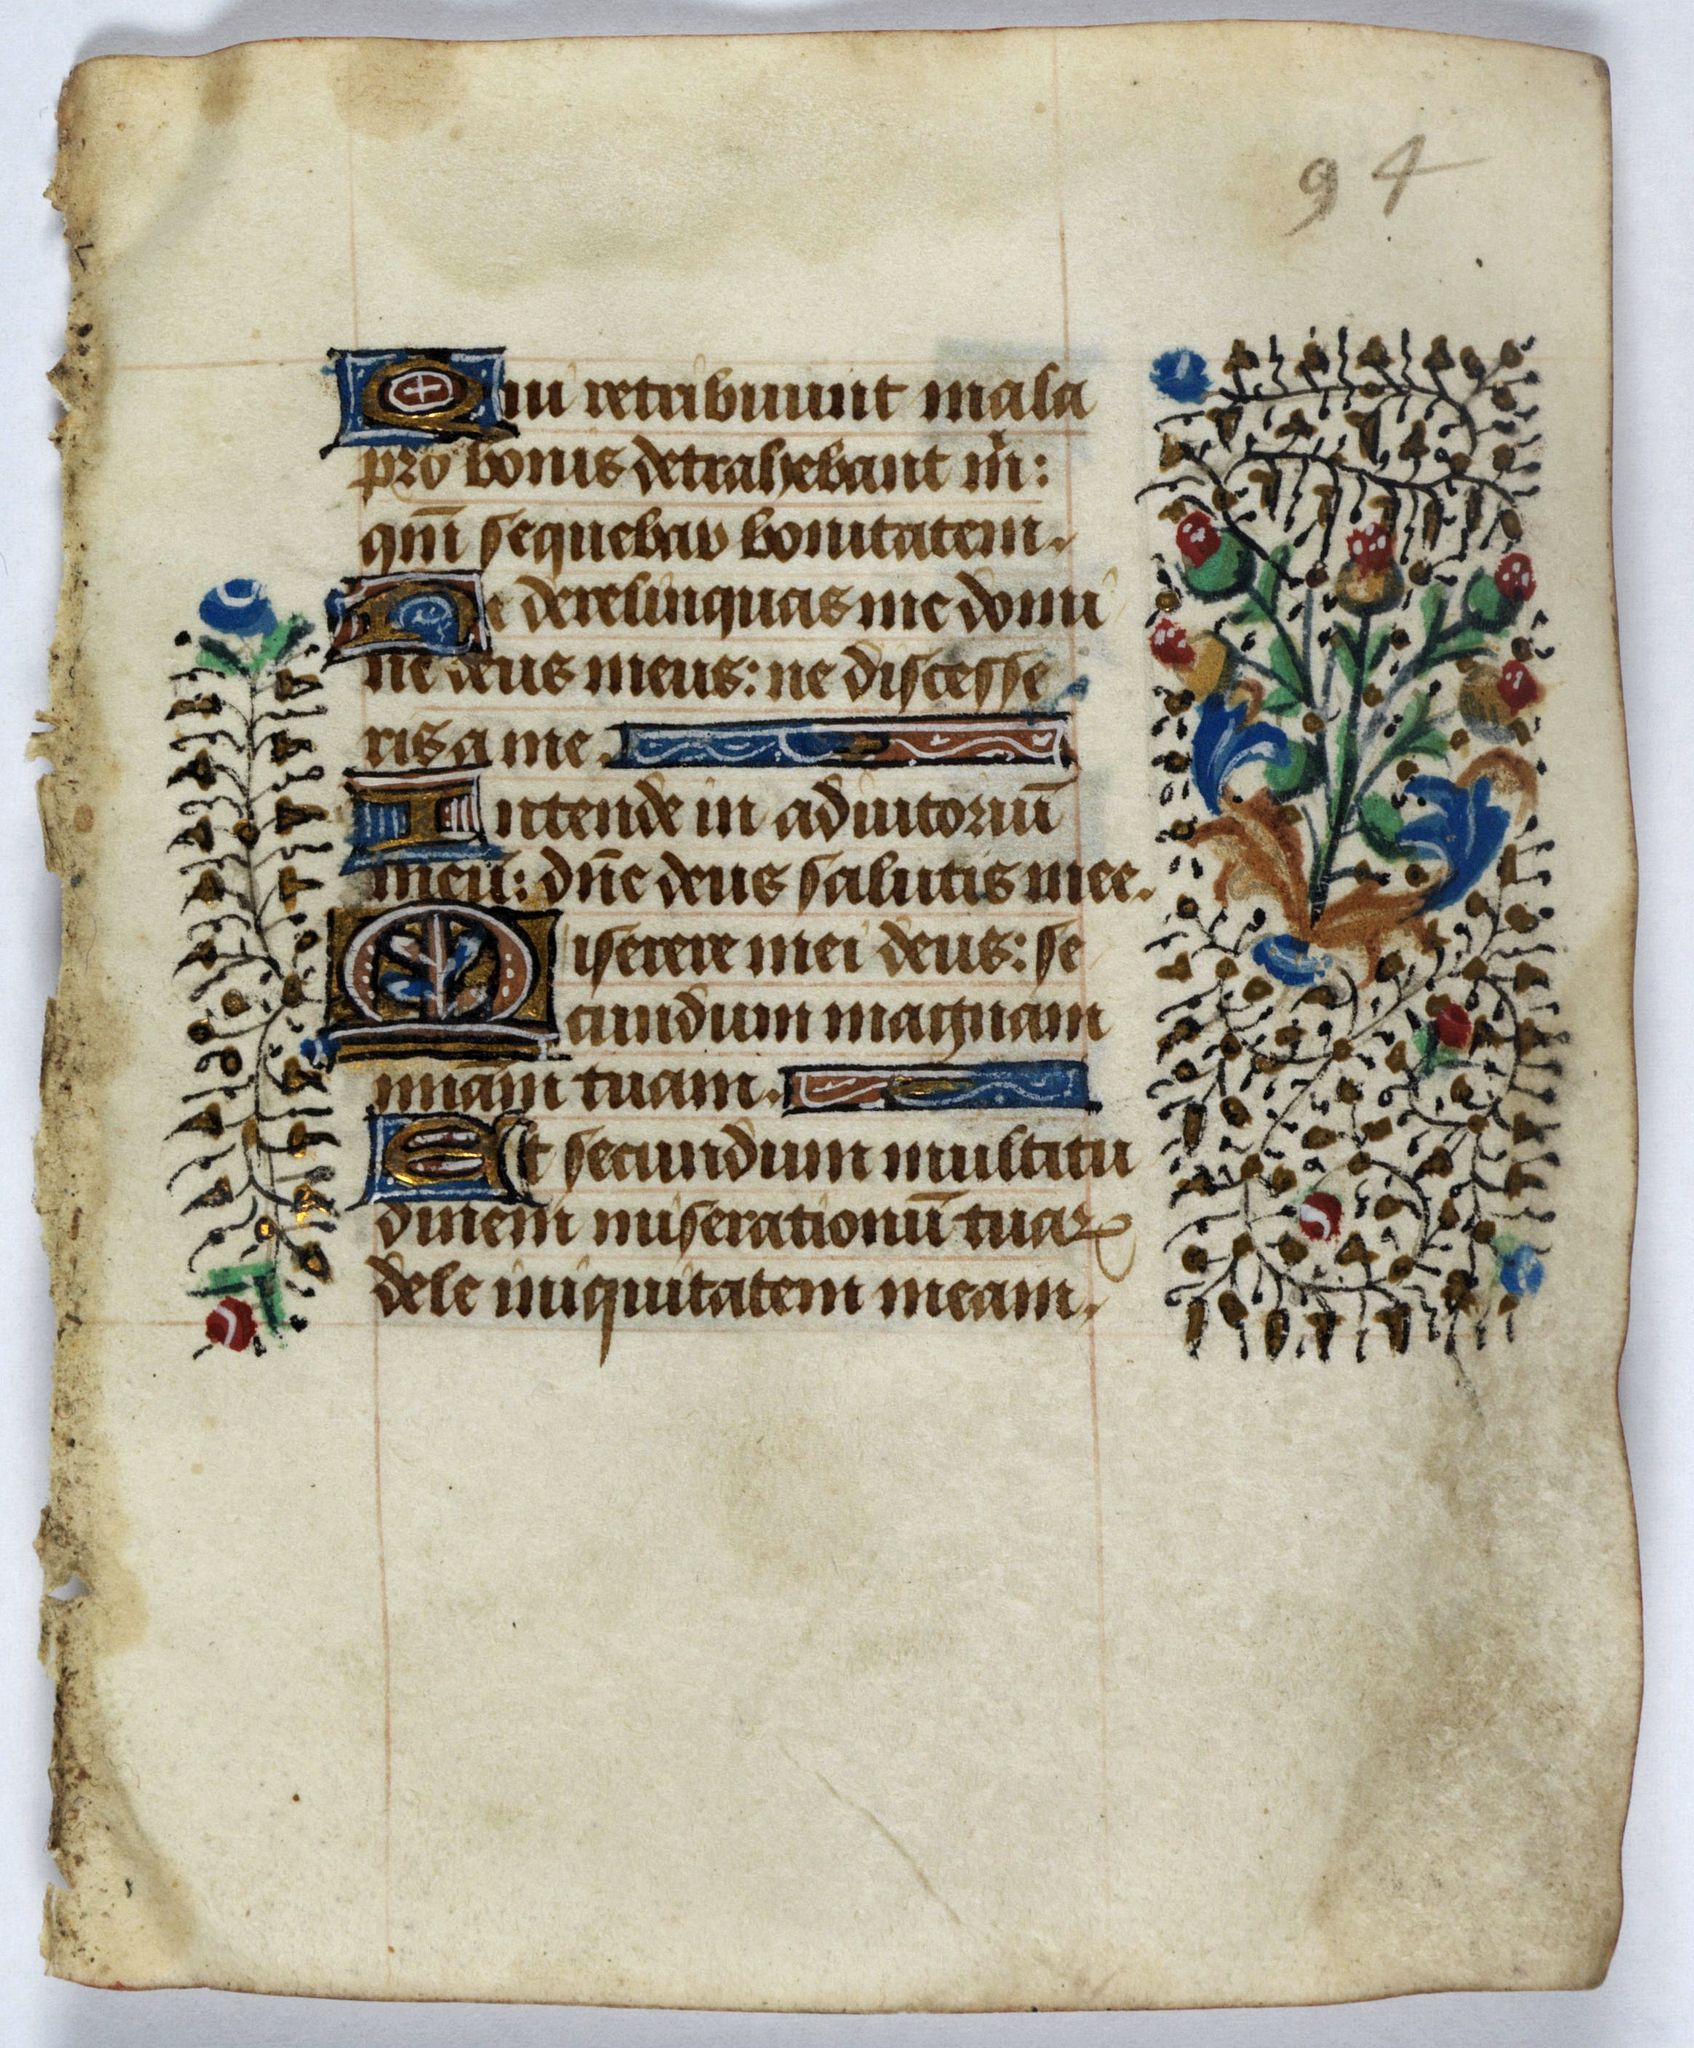 94
Qui retribuunt mala
pro bonis detrahebant m̃:
qm̃ sequebar bonitatem.
Ne derelinquas me domi
ne deus meus: ne discesse
ris a me.
Intende in adiutoriũ
meũ: dñe deus salutis mee.
Miserere mei deus: se
cundum magnam
miãm tuam.
Et secundum multitu
dinem miserationũ tuaꝝ
dele iniquitatem meam.